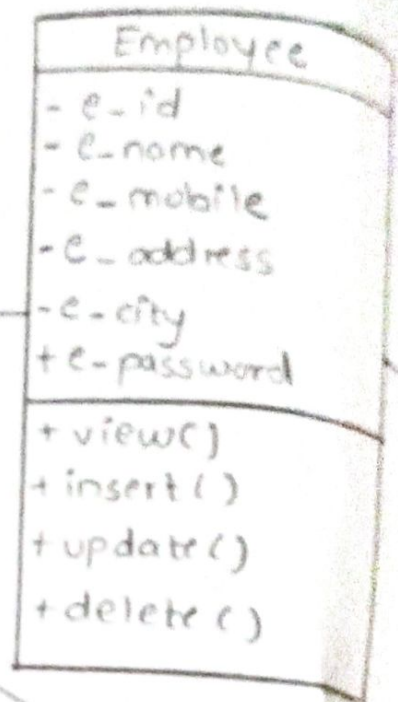 Employee
- e-id
- e-name
- e-mobile
- e-address
- e-city
+ e-password
+ view()
+ insert()
+ update()
+ delete()